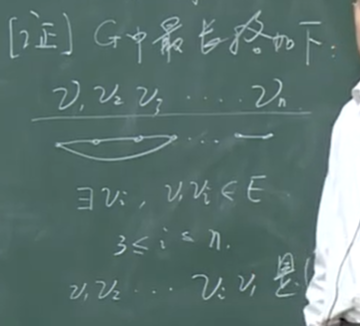 [证] G中最长路如下:
v₁ v₂ v₃ ····· vₙ
∃vᵢ, v₁vᵢ∈E
3≤i≤n.
v₁v₂ ··· vᵢ v₁ 是